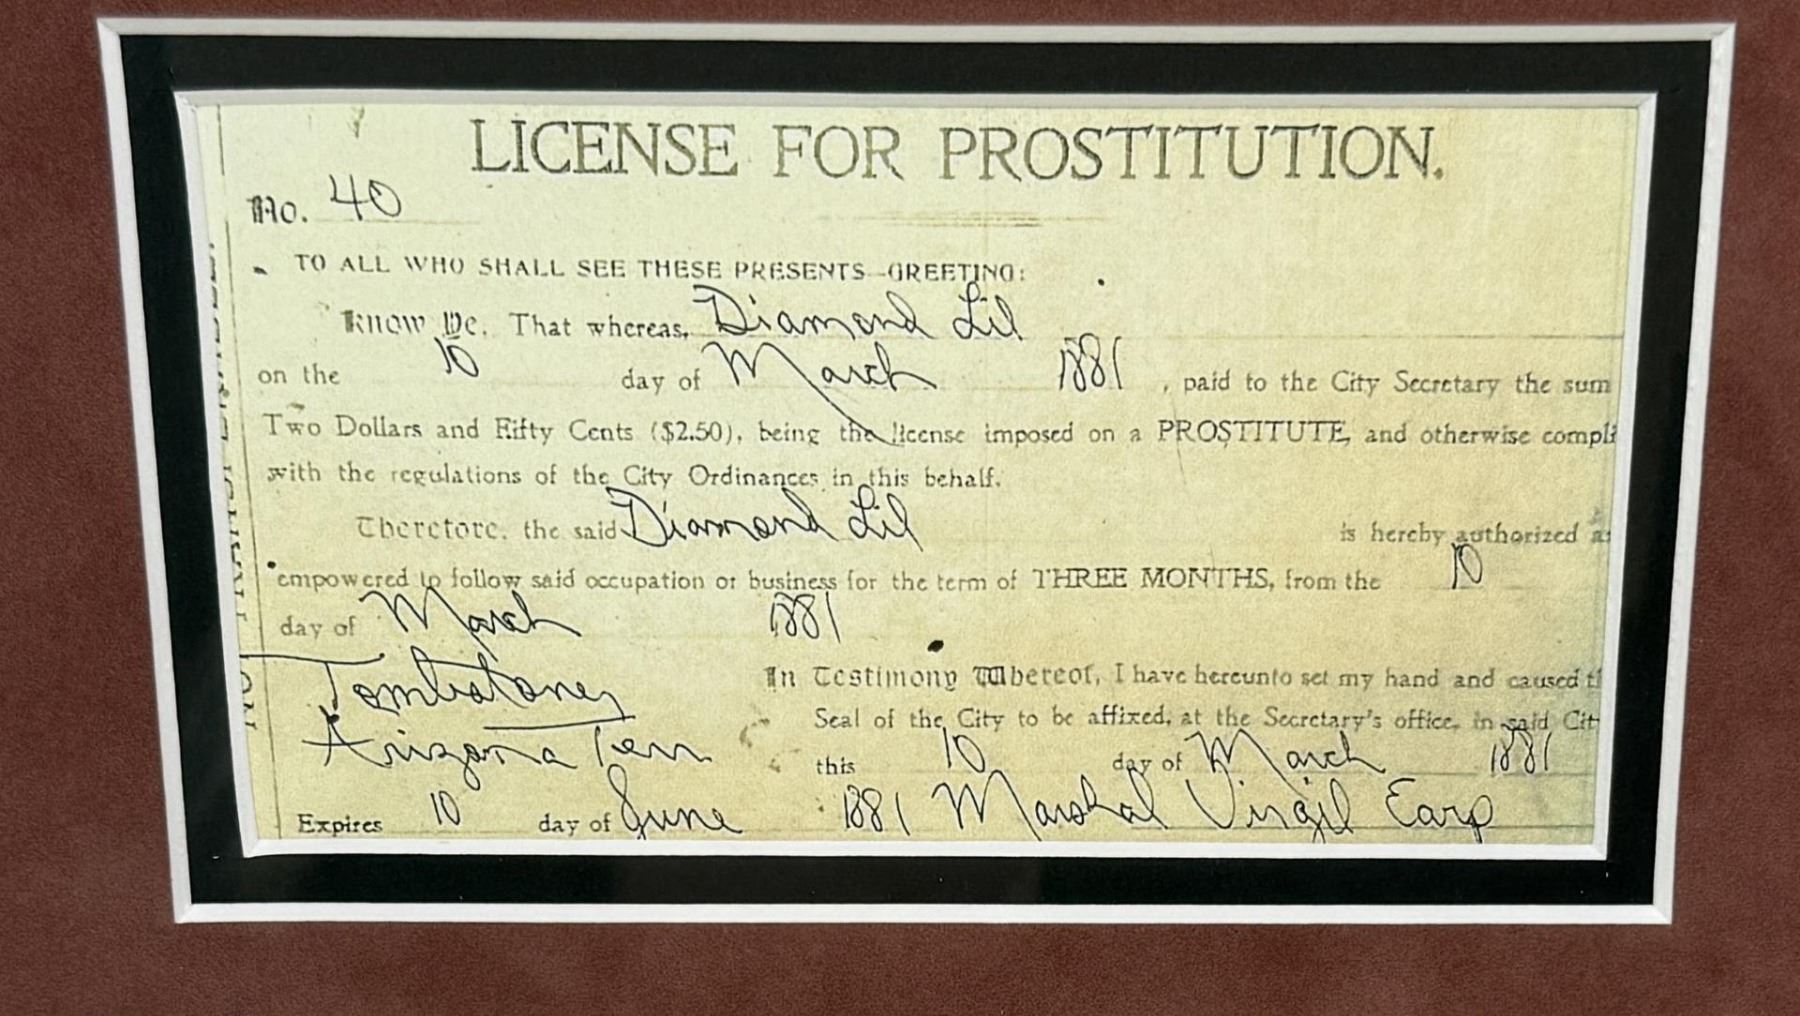 LICENSE FOR PROSTITUTION.
No. 40
TO ALL WHO SHALL SEE THESE PRESENTS—GREETING:
Know Ye. That whereas, Diamond Lil
on the 10 day of March 1881, paid to the City Secretary the sum
Two Dollars and Fifty Cents ($2.50), being the license imposed on a PROSTITUTE, and otherwise compli
with the regulations of the City Ordinances in this behalf.
Therefore, the said Diamond Lil is hereby authorized a
empowered to follow said occupation or business for the term of THREE MONTHS, from the 10
day of March 1881
Tombstone,
Arizona Terr
In Testimony Whereof, I have hereunto set my hand and caused t
Seal of the City to be affixed, at the Secretary's office, in said Cit
this 10 day of March 1881
Expires 10 day of June 1881 Marshal Virgil Earp